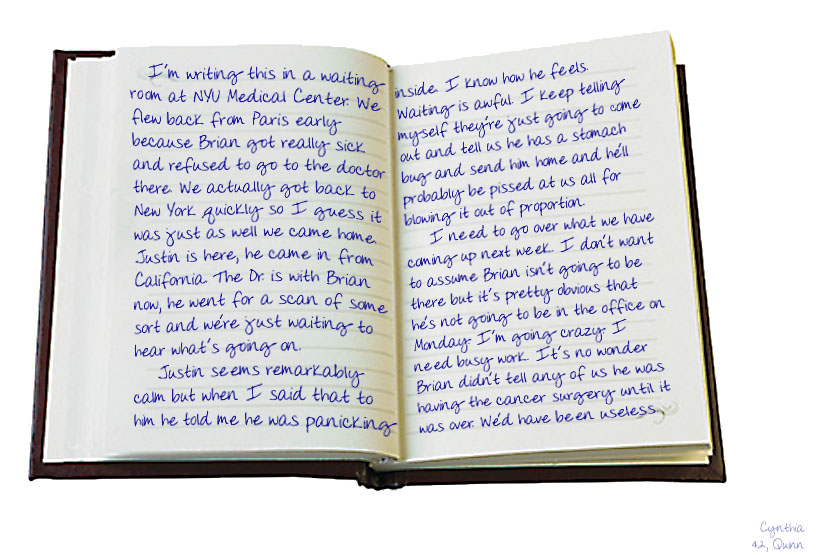 I'm writing this in a waiting
room at NYU Medical Center. We
flew back from Paris early
because Brian got really sick
and refused to go to the doctor
there. We actually got back to
New York quickly so I guess it
was just as well we came home.
Justin is here, he came in from
California. The Dr. is with Brian
now, he went for a scan of some
sort and we're just waiting to
hear what's going on.
Justin seems remarkably
calm but when I said that to
him he told me he was panicking
inside. I know how he feels.
Waiting is awful. I keep telling
myself they're just going to come
out and tell us he has a stomach
bug and send him home and he'll
probably be pissed at us all for
blowing it out of proportion.
I need to go over what we have
coming up next week. I don't want
to assume Brian isn't going to be
there but it's pretty obvious that
he's not going to be in the office on
Monday. I'm going crazy. I
need busy work. It's no wonder
Brian didn't tell any of us he was
having the cancer surgery until it
was over. We'd have been useless.
Cynthia
42, Qunn